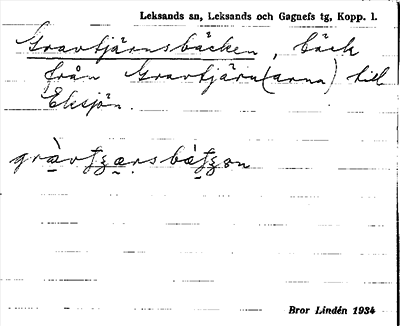 Leksands sn, Leksands och Gagnefs tg, Kopp. l.
Gravtjärnsbäcken, bäck
från Gravtjärn(arna) till
Eksjön.
Bror Lindén 1934